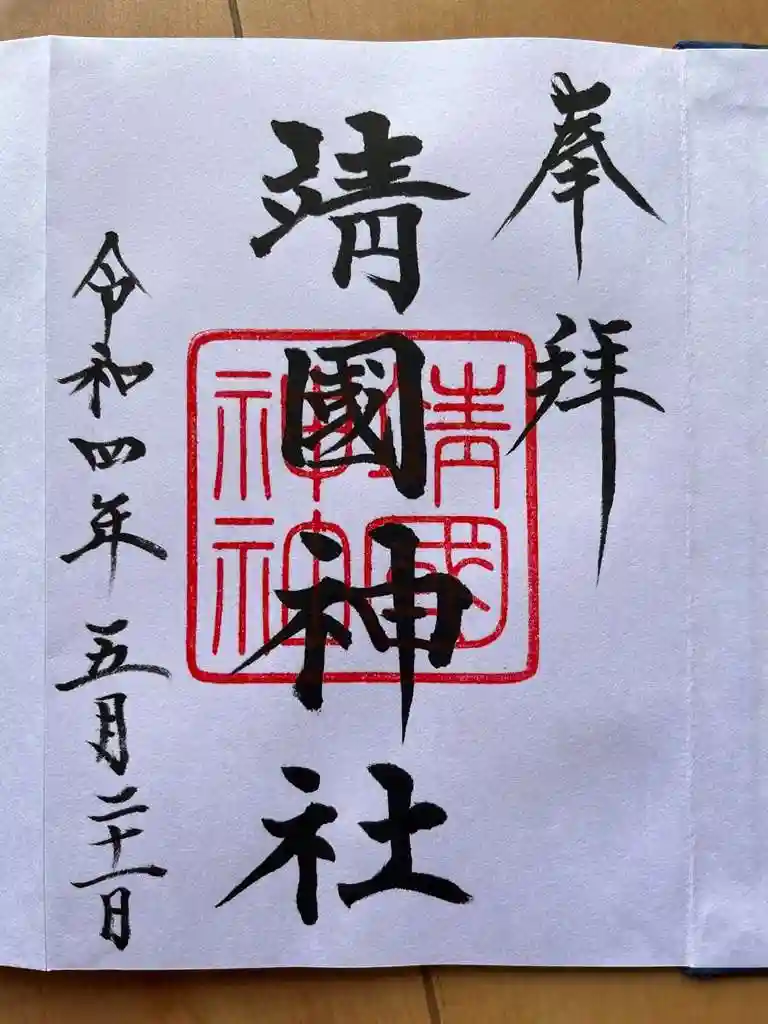 奉拝
靖國神社
靖國
神社
令和四年五月二十一日